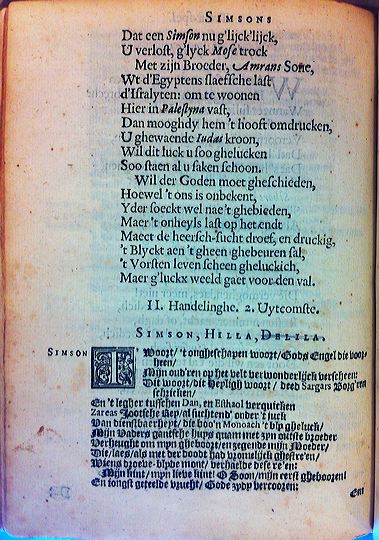 SIMSONS
Dat een Simson nu g'lijck'lijck,
U verlost, g'lyck Mose trock
Met zijn Broeder, Amrans Sone,
Wt d'Egyptens slaefsche last
d'Isralyten: om te woonen
Hier in Palestyna vast,
Dan mooghdy hem 't hooft omdrucken,
U ghewaende Iudas kroon,
Wil dit luck u soo ghelucken
Soo staen al u saken schoon.
Wil der Goden moet gheschieden,
Hoewel 't ons is onbekent,
Yder soeckt wel nae 't ghebieden,
Maer 't onheyls last op het endt
Maect de heersch-sucht droef, en druckig,
'T Blyckt aen 't gheen ghebeuren sal,
't Vorsten leven scheen gheluckich,
Maer g'luckx weeld gaet voor den val.
II. Handelinghe. 2. Uytcomste.
SIMSON, HILLA, DELILA.
SIMSON
Woort/ 't ongheschapen woort/ Gods Engel die voor-
heen/
Mijn oud'ren op het velt verwonderlijck verscheen:
Dit woort/ dit heyligh woort/ deed Sargars Borg'en
schricken/
En 't legher tusschen Dan, en Esthaol verquicken
Zareas Jootsche Rey/ al suchtend' onder 't juck
Van dienstbaerheyt/ die hoo'n Monoach 't bly gheluck/
Mijn Vaders gantsche huys quam met zyn outste broeder
Verheught om mijn gheboort/ en zegende mijn Moeder/
Die/ laes/ als met der doodt had vromelijck ghestre'en/
Wiens droeve-blyde mont/ verhaelde dese re'en:
Mijn kint/ myn lieve kint! O Soon/ mijn eerst gheboren!
En jongst geteelde vrucht/ Gode zydy vercooren:
En